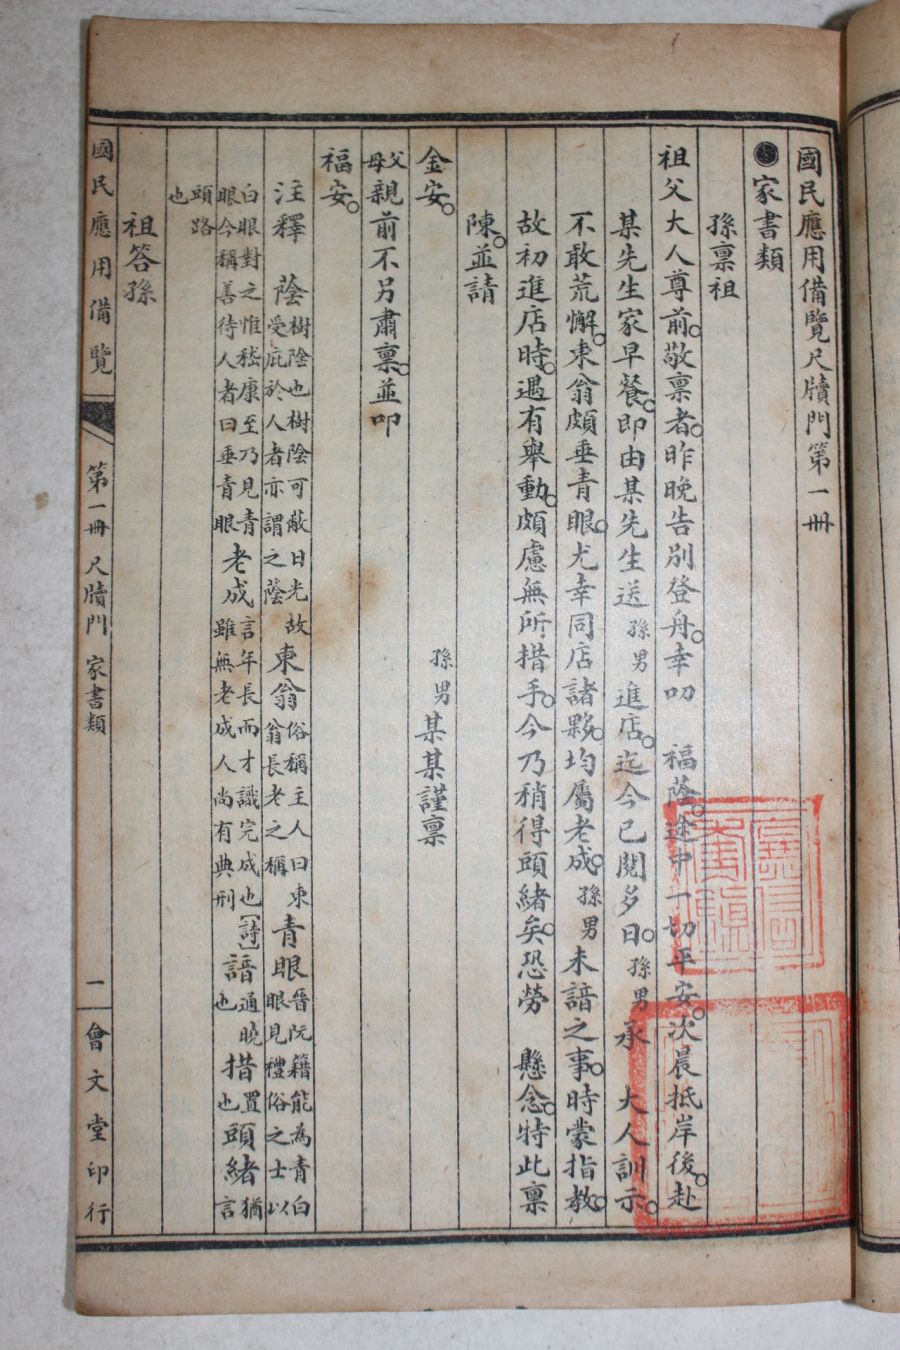 國民應用備覽尺牘門第一冊
家書類
孫稟祖
祖父大人尊前。敬稟者。昨晚告別登舟。幸叨　福蔭。途中一切平安。次晨抵岸後。赴
某先生家早餐。即由某先生送孫男進店。迄今已閱多日。孫男承　大人訓示。
不敢荒懈。東翁頗垂青眼。尤幸同店諸夥。均屬老成。孫男未諳之事。時蒙指教。
故初進店時。遇有舉動。頗慮無所措手。今乃稍得頭緒矣。恐勞　懸念。特此稟
陳。並請
金安。　孫男某某謹稟
父母親前不另肅稟。並叩
福安。
注釋　蔭樹陰也樹陰可蔽日光故受庇於人者亦謂之蔭東翁俗稱主人曰東翁長老之稱青眼晉阮籍能為青白眼見禮俗之士以
白眼對之惟嵇康至乃見青眼今稱善待人者曰垂青眼老成言年長而才識完成也〔詩〕雖無老成人尚有典刑諳通曉也措置也頭緒猶言
頭路也
祖答孫
國民應用備覽　第一冊　尺牘門　家書類　一　會文堂印行